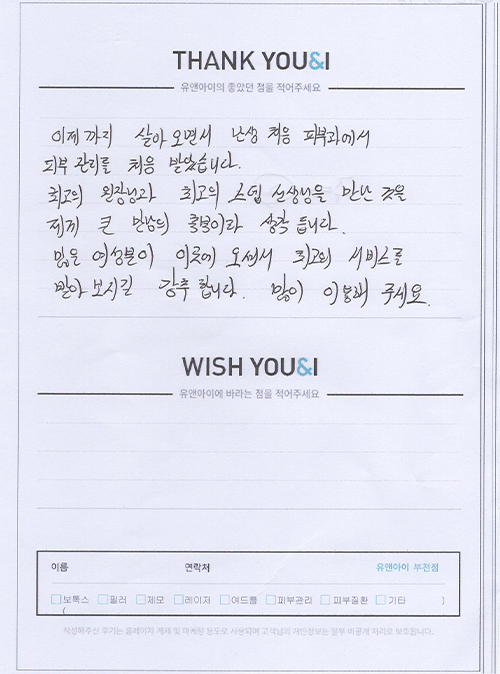 THANK YOU&I
유앤아이의 좋았던 점을 적어주세요
이제까지 살아 오면서 난생 처음 피부과에서
피부 관리를 처음 받았습니다.
최고의 원장님과 최고의 스텝 선생님을 만난 것을
제게 큰 만남의 축복이라 생각 듭니다.
많은 여성분이 이곳에 오셔서 최고의 서비스를
받아 보시길 강추 합니다. 많이 이용해 주세요.
WISH YOU&I
유앤아이에 바라는 점을 적어주세요
이름 연락처 유앤아이 부전점
보톡스 필러 제모 레이저 여드름 피부관리 피부질환 기타 )
(
작성해주신 후기는 홈페이지 게재 및 마케팅 용도로 사용되며 고객님의 개인정보는 일부 비공개 처리로 보호됩니다.